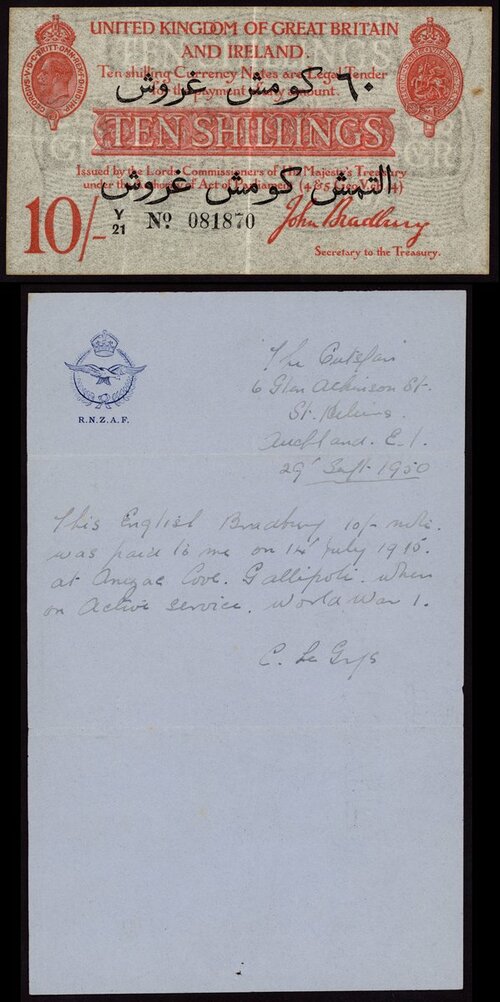 UNITED KINGDOM OF GREAT BRITAIN
AND IRELAND
Ten shilling Currency Notes are Legal Tender
for the payment of any amount.
٦٠ كومش غروش
TEN SHILLINGS
Issued by the Lords Commissioners of His Majesty's Treasury
under the Authority of Act of Parliament (4 & 5 Geo. V ch. 14)
التمش كومش غروش
10/- Y/21 Nº 081870 John Bradbury
Secretary to the Treasury.
R.N.Z.A.F.
6 Glen Atkinson St.
St. Heliers.
Auckland. E.1.
29 Sept. 1950
This English Bradbury 10/- note.
was paid to me on 14 July 1915.
at Anzac Cove. Gallipoli. when
on Active service. World War 1.
C. Le Grys